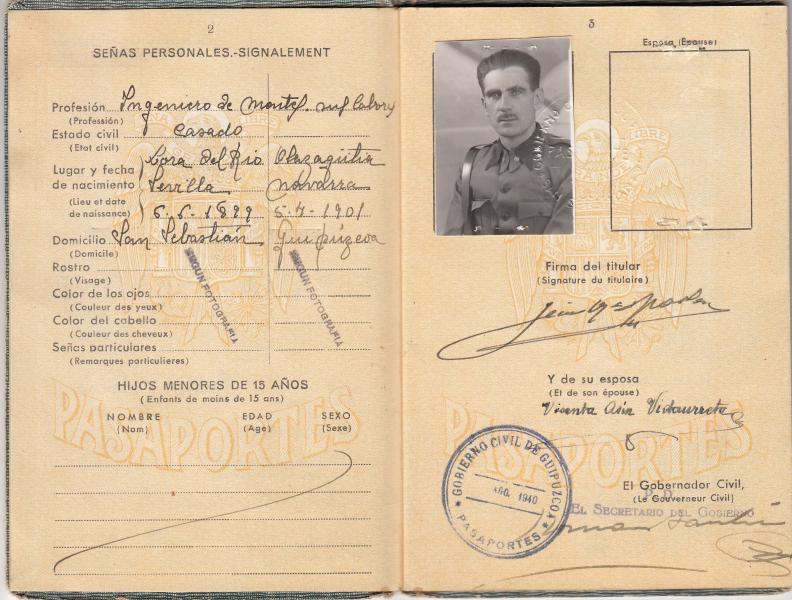 2
SEÑAS PERSONALES.-SIGNALEMENT
Profesión Ingeniero de Montes. sus labores
(Profession)
Estado civil casado
(Etat civil)
Lugar y fecha de nacimiento
(Lieu et date de naissance)
Lora del Rio Olazagutia
Sevilla Navarra
6-6-1899 5-7-1901
Domicilio San Sebastián Guipúzcoa
(Domicile)
Rostro
(Visage)
SEGUN FOTOGRAFIA SEGUN FOTOGRAFIA
Color de los ojos
(Couleur des yeux)
Color del cabello
(Couleur des cheveux)
Señas particulares
(Remarques particulieres)
HIJOS MENORES DE 15 AÑOS
(Enfants de moins de 15 ans)
NOMBRE EDAD SEXO
(Nom) (Age) (Sexe)
PASAPORTES
3
Esposa (Epouse)
Firma del titular
(Signature du titulaire)
Y de su esposa
(Et de son épouse)
Vicenta Asín Vidaurreta
PASAPORTES
GOBIERNO CIVIL DE GUIPUZCOA
AGO. 1940
PASAPORTES
El Gobernador Civil,
(Le Gouverneur Civil)
P. D.
EL SECRETARIO DEL GOBIERNO